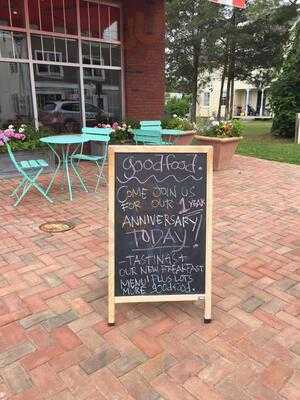 goodfood.
COME JOIN US
FOR OUR 1 YEAR
ANNIVERSARY
TODAY!
-TASTINGS+
OUR NEW BREAKFAST
MENU! PLUS LOTS
MORE goodfood.